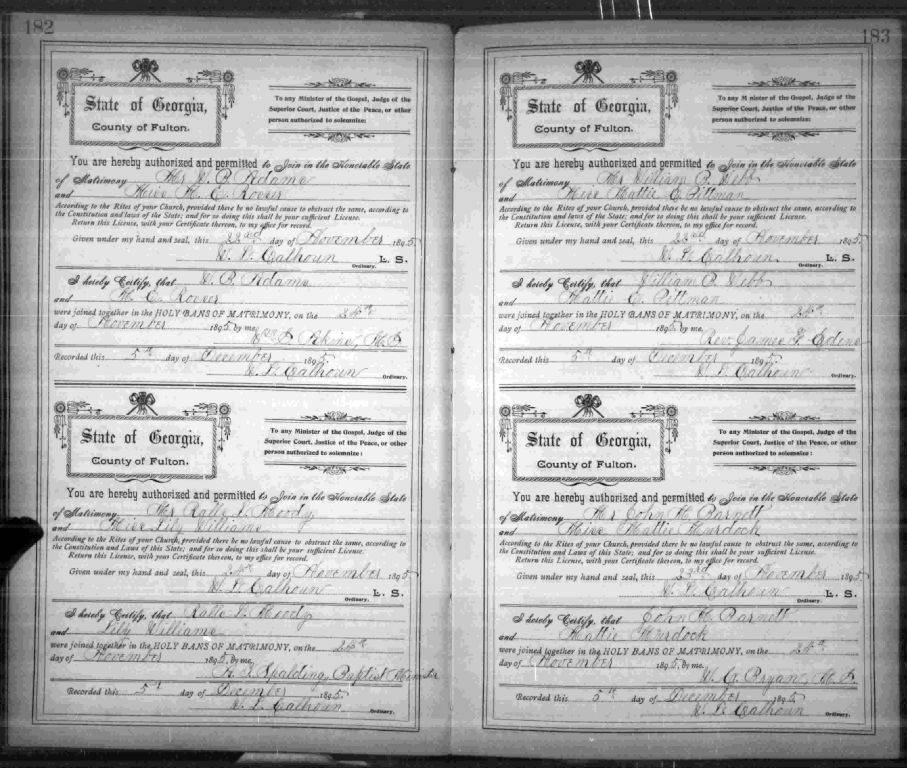 182
State of Georgia,
County of Fulton.
To any Minister of the Gospel, Judge of the
Superior Court, Justice of the Peace, or other
person authorized to solemnize:
You are hereby authorized and permitted to Join in the Honorable State
of Matrimony Mr W. P. Adams
and Miss M. E.
According to the Rites of your Church, provided there be no lawful cause to obstruct the same, according to
the Constitution and laws of the State; and for so doing this shall be your sufficient License.
Return this License, with your Certificate thereon, to my office for record.
Given under my hand and seal, this 23rd day of November 1895
W. L. Calhoun L. S.
Ordinary.
I hereby Certify, that W. P. Adams
and M. E.
were joined together in the HOLY BANS OF MATRIMONY, on the 24th
day of November 1895 by me,
Recorded this 5th day of December 1895
W. L. Calhoun
Ordinary.
State of Georgia,
County of Fulton.
To any Minister of the Gospel, Judge of the
Superior Court, Justice of the Peace, or other
person authorized to solemnize:
You are hereby authorized and permitted to Join in the Honorable State
of Matrimony Mr Moody
and Miss Lily Williams
According to the Rites of your Church, provided there be no lawful cause to obstruct the same, according to
the Constitution and Laws of this State; and for so doing this shall be your sufficient License.
Return this License, with your Certificate thereon, to my office for record.
Given under my hand and seal, this day of November 1895
W. L. Calhoun L. S.
Ordinary.
I hereby Certify, that Moody
and Lily Williams
were joined together in the HOLY BANS OF MATRIMONY, on the
day of November 1895, by me,
Spalding, Baptist Minister
Recorded this 5th day of December 1895
W. L. Calhoun
Ordinary.
183
State of Georgia,
County of Fulton.
To any Minister of the Gospel, Judge of the
Superior Court, Justice of the Peace, or other
person authorized to solemnize:
You are hereby authorized and permitted to Join in the Honorable State
of Matrimony Mr William P. Webb
and Miss Mattie E. Pittman
According to the Rites of your Church, provided there be no lawful cause to obstruct the same, according to
the Constitution and laws of the State; and for so doing this shall be your sufficient License.
Return this License, with your Certificate thereon, to my office for record.
Given under my hand and seal, this 23rd day of November 1895
W. L. Calhoun L. S.
Ordinary.
I hereby Certify, that William P. Webb
and Mattie E. Pittman
were joined together in the HOLY BANS OF MATRIMONY, on the 24th
day of November 1895, by me,
Rev. James
Recorded this 5th day of December 1895
W. L. Calhoun
Ordinary.
State of Georgia,
County of Fulton.
To any Minister of the Gospel, Judge of the
Superior Court, Justice of the Peace, or other
person authorized to solemnize:
You are hereby authorized and permitted to Join in the Honorable State
of Matrimony Mr John H. Barnett
and Miss Mattie Murdock
According to the Rites of your Church, provided there be no lawful cause to obstruct the same, according to
the Constitution and Laws of this State; and for so doing this shall be your sufficient License.
Return this License, with your Certificate thereon, to my office for record.
Given under my hand and seal, this 23rd day of November 1895
W. L. Calhoun L. S.
Ordinary.
I hereby Certify, that John H. Barnett
and Mattie Murdock
were joined together in the HOLY BANS OF MATRIMONY, on the 24th
day of November 1895, by me,
W. G. Bryan, M. G.
Recorded this 5th day of December 1895
W. L. Calhoun
Ordinary.